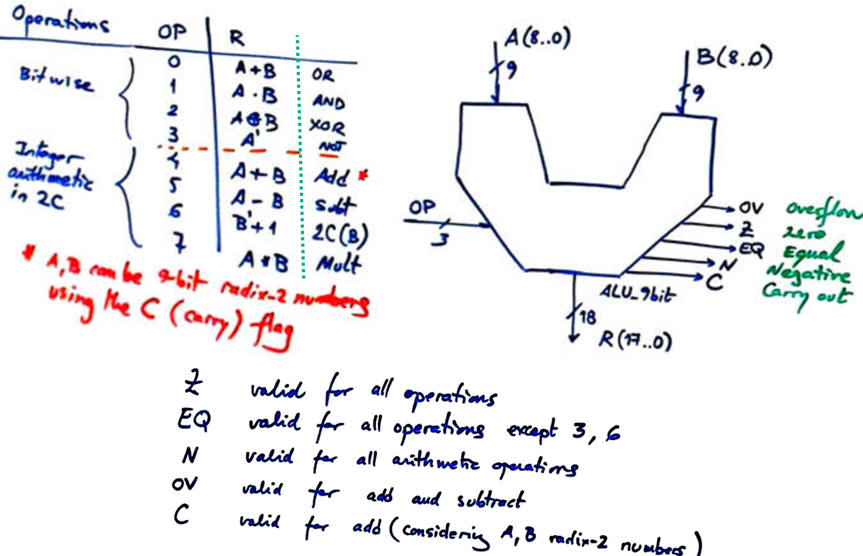 Operations OP R
Bitwise
0 A+B OR
1 A·B AND
2 A⊕B XOR
3 A' NOT
Integer arithmetic in 2C
4 A+B Add *
5 A-B subt
6 B'+1 2C(B)
7 A*B Mult
* A,B can be 9-bit radix-2 numbers
using the C (carry) flag
A(8..0)
9
B(8..0)
9
OP
3
OV Overflow
Z zero
EQ Equal
N Negative
C Carry out
ALU_9bit
18
R(17..0)
Z valid for all operations
EQ valid for all operations except 3, 6
N valid for all arithmetic operations
OV valid for add and subtract
C valid for add (considering A,B radix-2 numbers)